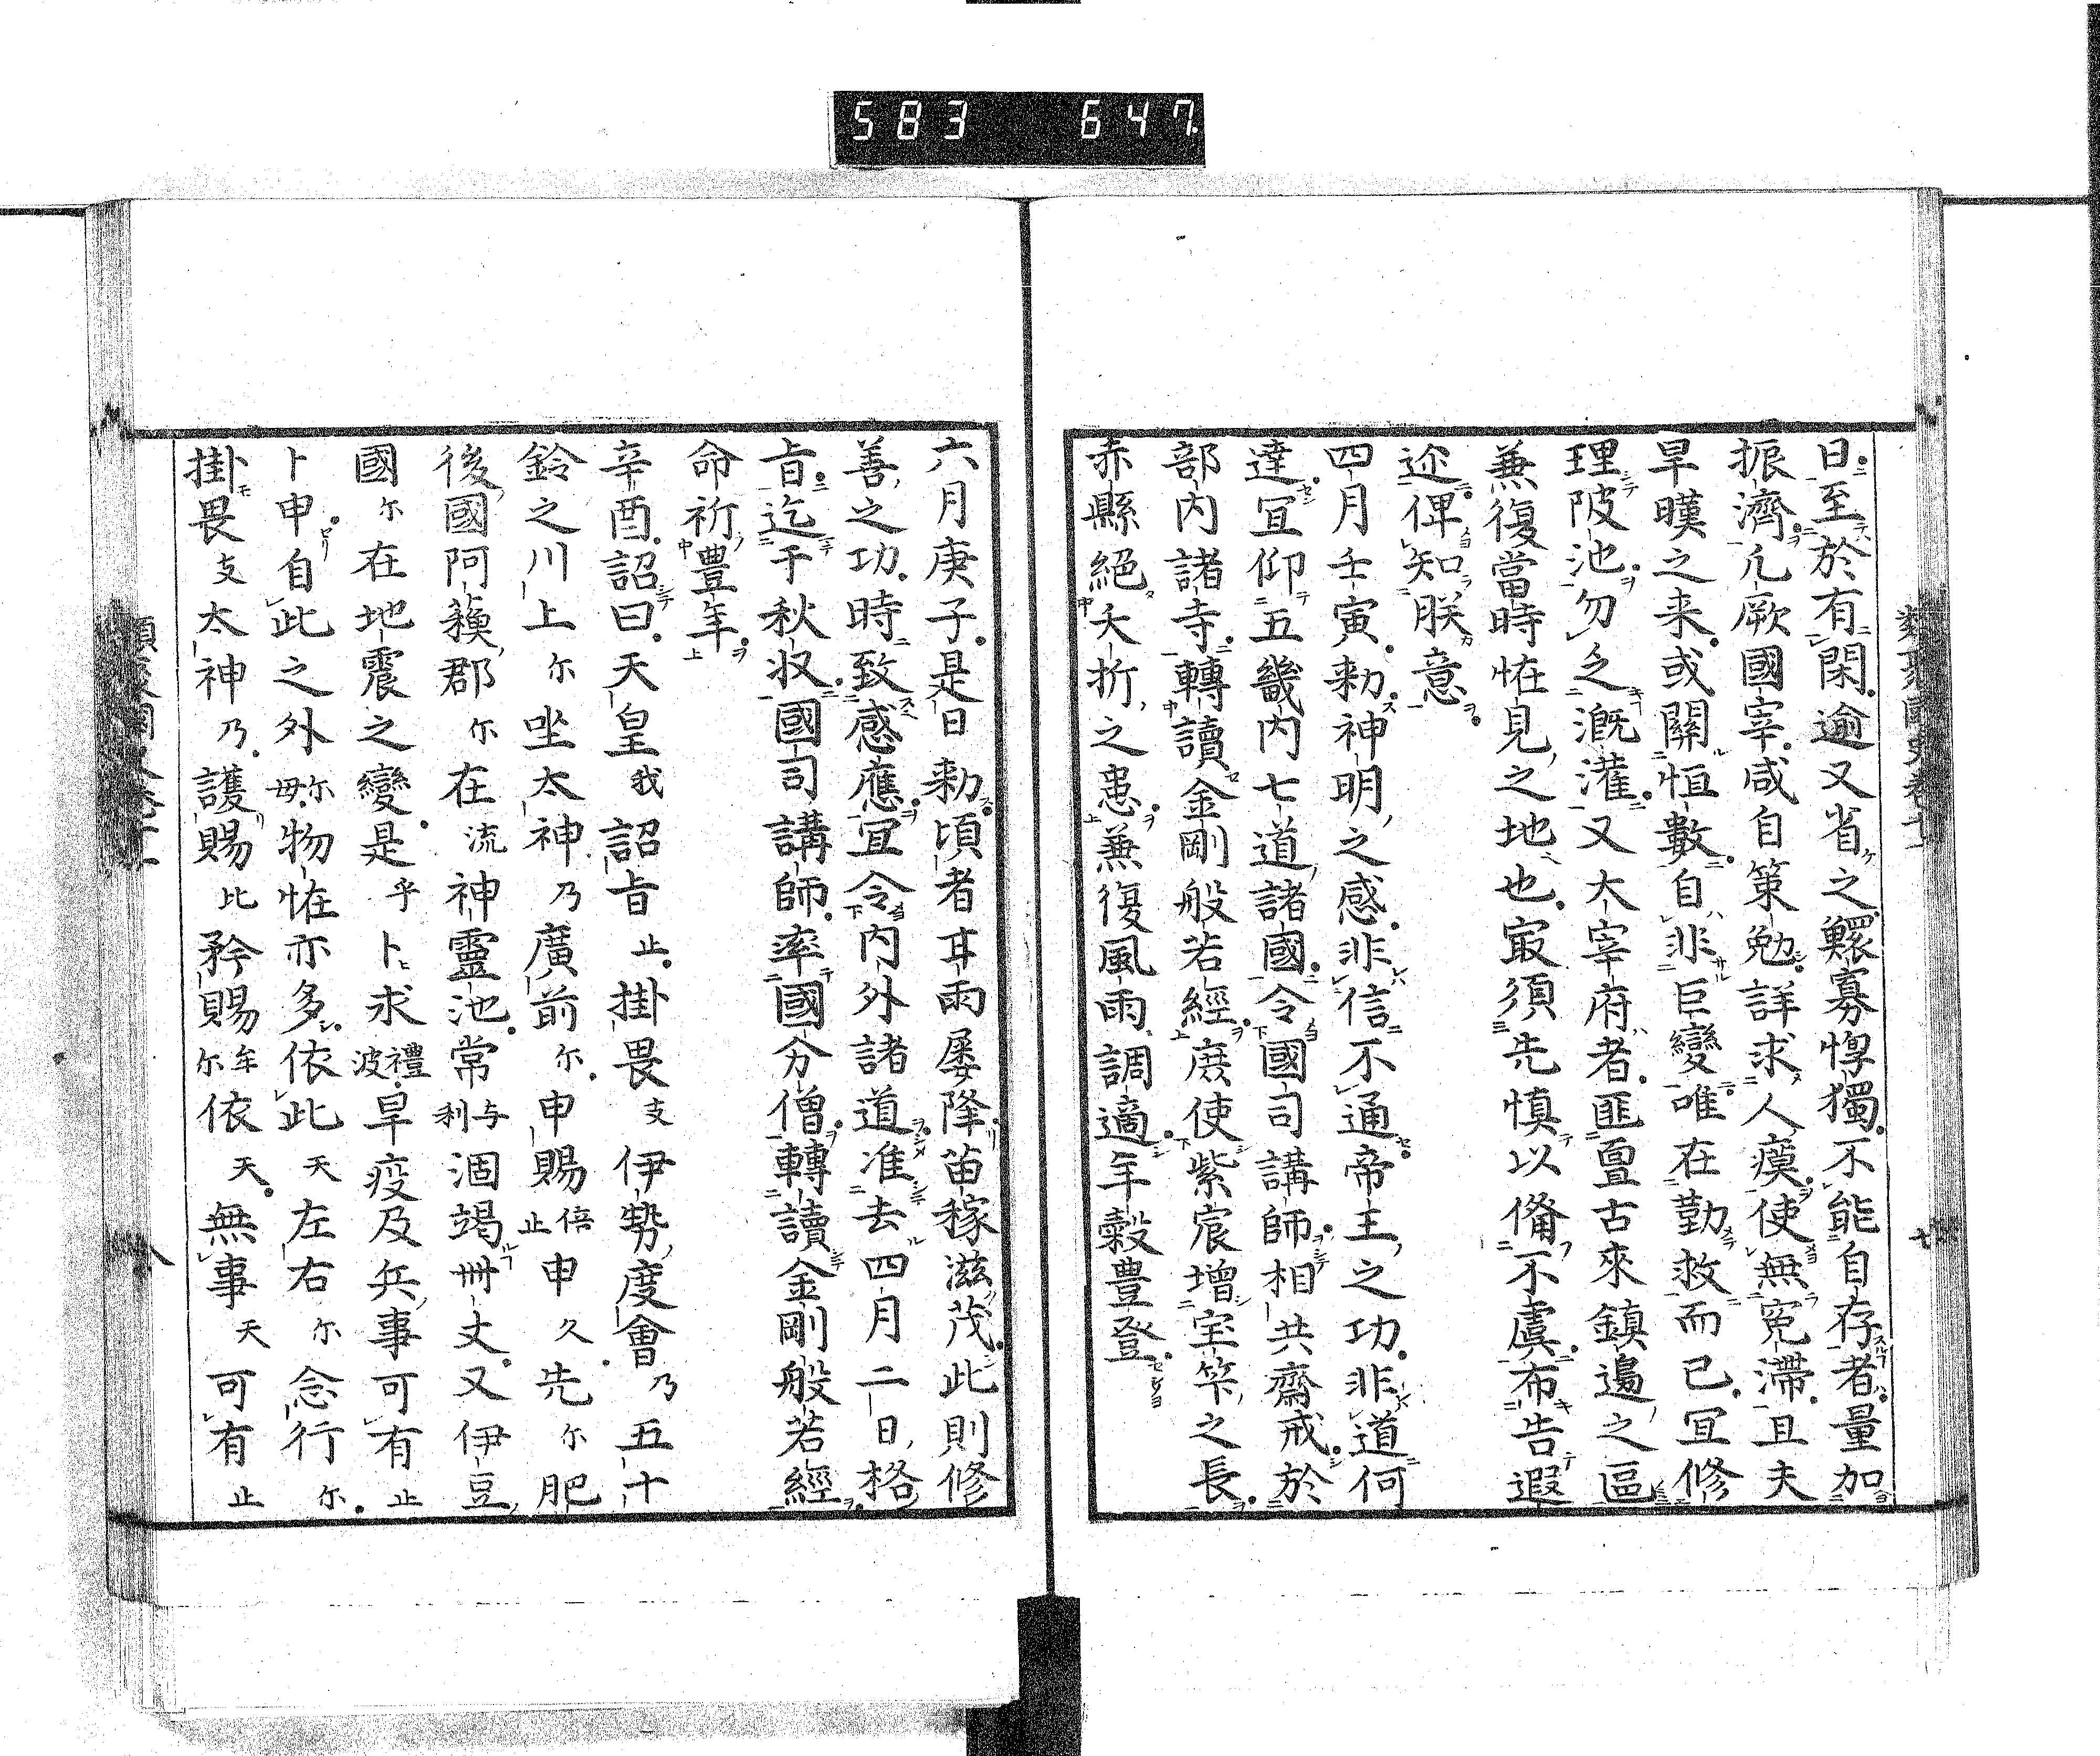 583 647
日至於有閑逾又省之鰥寡惸獨不能自存者量加
振濟凢厥國宰咸自策勉詳求人瘼使無寃滯且夫
旱暵之来或關恒數自非巨變唯在勤救而已冝修
理陂池勿乏漑灌又大宰府者匪亶古來鎮邊之區
兼復當時恠見之地也冣須先慎以俻不虞布告遐
迩俾知朕意
四月壬寅勑神明之感非信不通帝王之功非道何
達冝仰五畿内七道諸國令國司講師相共齋戒於
部内諸寺轉讀金剛般若經庻使紫宸增宝筭之長
赤縣絕夭折之患兼復風雨調適年穀豊登
六月庚子是日勑頃者耳雨屡降苗稼滋茂此則修
善之功時致感應冝令内外諸道准去四月二日格
旨迄于秋収國司講師率國分僧轉讀金剛般若經
命祈豊年
辛酉詔曰天皇我詔旨止掛畏支伊勢度會乃五十
鈴之川上尓坐太神乃廣前尓申賜倍止申久先尓肥
後國阿蘓郡尓在流神靈池常与利涸竭卌丈又伊豆
國尓在地震之變是乎卜求禮波旱疫及兵事可有止
卜申自此之外尓毋物恠亦多依此天左右尓念行尓
掛畏支太神乃護賜比矜賜牟尓依天無事天可有止